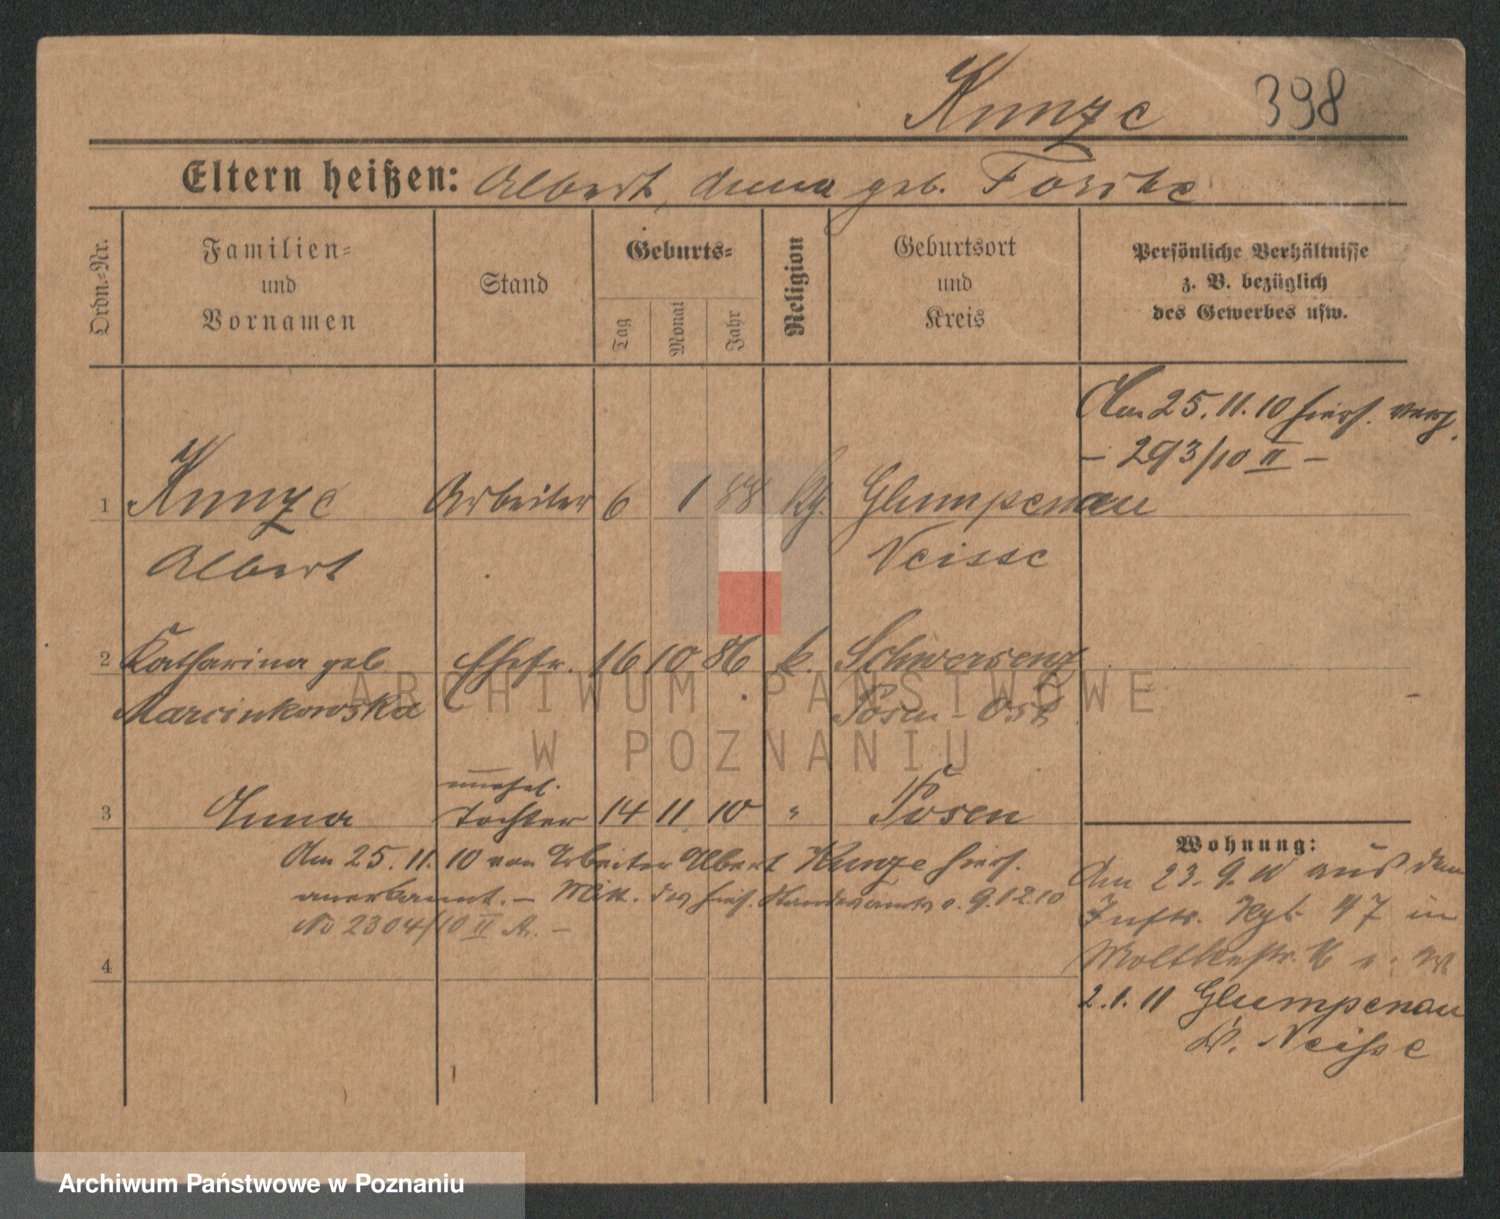 Kunze 398
Eltern heißen: Albert, Anna geb.
Ordn.-Nr.
Familien-
und
Vornamen
Stand
Geburts-
Tag
Monat
Jahr
Religion
Geburtsort
und
Kreis
Persönliche Verhältnisse
z. B. bezüglich
des Gewerbes usw.
Am 25.11.10 hies.
– 293/10 II –
1 Kunze Arbeiter 6 1 88 Glumpenau
Albert Neisse
2 Katharina geb Ehefr. 16 10 86 k. Schwersenz
Marcinkowska Posen - Ost
unehel.
3 Anna Tochter 14 11 10 " Posen
Am 25.11.10 von Arbeiter Albert Kunze hies.
anerkannt. – Mitt. des hies. Standesamts v. 9.12.10
No 2304/10 II –
4
Wohnung:
Am 23.9.10 aus dem
Inftr. Rgt. 47 in
Moltkestr.
2.1.11 Glumpenau
Kr. Neisse
ARCHIWUM PAŃSTWOWE
W POZNANIU
Archiwum Państwowe w Poznaniu